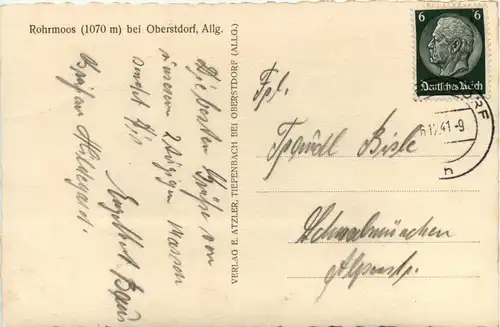 Rohrmoos (1070 m) bei Oberstdorf, Allg.
Die besten Grüße von
unserem 2tägigen Marsch
sendet Dir
Engelbert
Grüße an Hildegard.
VERLAG E. ATZLER, TIEFENBACH BEI OBERSTDORF (ALLG.)
6
6
Deutsches Reich
DORF
12.41-9
n
Frl.
Bisle
Schwabmünchen
Alpenstr.